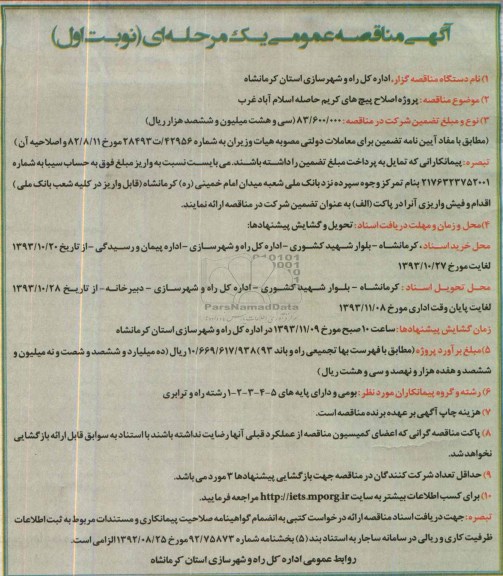 آگهی مناقصه عمومی یک مرحله‌ای (نوبت اول)
۱) نام دستگاه مناقصه گزار: اداره کل راه و شهرسازی استان کرمانشاه
۲) موضوع مناقصه: پروژه اصلاح پیچ های کریم حاصله اسلام آباد غرب
۳) نوع و مبلغ تضمین شرکت در مناقصه: ۸۳/۶۰۰/۰۰۰ (سی و هشت میلیون و ششصد هزار ریال)
(مطابق با مفاد آیین نامه تضمین برای معاملات دولتی مصوبه هیات وزیران به شماره ۴۲۹۵۶/ت۲۸۴۹۳ مورخ ۸۲/۸/۱۱ و اصلاحیه آن)
تبصره: پیمانکارانی که تمایل به پرداخت مبلغ تضمین را داشته باشند. می بایست نسبت به واریز مبلغ فوق به حساب سیبا به شماره
۲۱۷۶۳۲۳۷۵۲۰۰۱ بنام تمرکز وجوه سپرده نزد بانک ملی شعبه میدان امام خمینی (ره) کرمانشاه (قابل واریز در کلیه شعب بانک ملی)
اقدام و فیش واریزی آنرا در پاکت (الف) به عنوان تضمین شرکت در مناقصه ارائه نمایند.
۴) محل و زمان و مهلت دریافت اسناد: تحویل و گشایش پیشنهادها:
محل خرید اسناد: کرمانشاه - بلوار شهید کشوری - اداره کل راه و شهرسازی - اداره پیمان و رسیدگی - از تاریخ ۱۳۹۳/۱۰/۲۰
لغایت مورخ ۱۳۹۳/۱۰/۲۷
محل تحویل اسناد: کرمانشاه - بلوار شهید کشوری - اداره کل راه و شهرسازی - دبیرخانه - از تاریخ ۱۳۹۳/۱۰/۲۸
لغایت پایان وقت اداری مورخ ۱۳۹۳/۱۱/۰۸
ParsNamadData
زمان گشایش پیشنهادها: ساعت ۱۰ صبح مورخ ۱۳۹۳/۱۱/۰۹ در اداره کل راه و شهرسازی استان کرمانشاه
۵) مبلغ برآورد پروژه (مطابق با فهرست بها تجمیعی راه و باند ۹۳) ۱۰/۶۶۹/۶۱۷/۹۳۸ ریال (ده میلیارد و ششصد و شصت و نه میلیون و
ششصد و هفده هزار و نهصد و سی و هشت ریال)
۶) رشته و گروه پیمانکاران مورد نظر: بومی و دارای پایه های ۵-۴-۳-۲-۱ رشته راه و ترابری
۷) هزینه چاپ آگهی بر عهده برنده مناقصه است.
۸) پاکت مناقصه گرانی که اعضای کمیسیون مناقصه از عملکرد قبلی آنها رضایت نداشته باشند با استناد به سوابق قابل ارائه بازگشایی
نخواهد شد.
۹) حداقل تعداد شرکت کنندگان در مناقصه جهت بازگشایی پیشنهادها ۳ مورد می باشد.
۱۰) برای کسب اطلاعات بیشتر به سایت http://iets.mporg.ir مراجعه فرمایید.
تبصره: جهت دریافت اسناد مناقصه ارائه درخواست کتبی به انضمام گواهینامه صلاحیت پیمانکاری و مستندات مربوط به ثبت اطلاعات
ظرفیت کاری و ریالی در سامانه ساجار به استناد بند (۵) بخشنامه شماره ۹۲/۷۵۸۷۳ مورخ ۱۳۹۲/۰۸/۲۵ الزامی است.
روابط عمومی اداره کل راه و شهرسازی استان کرمانشاه